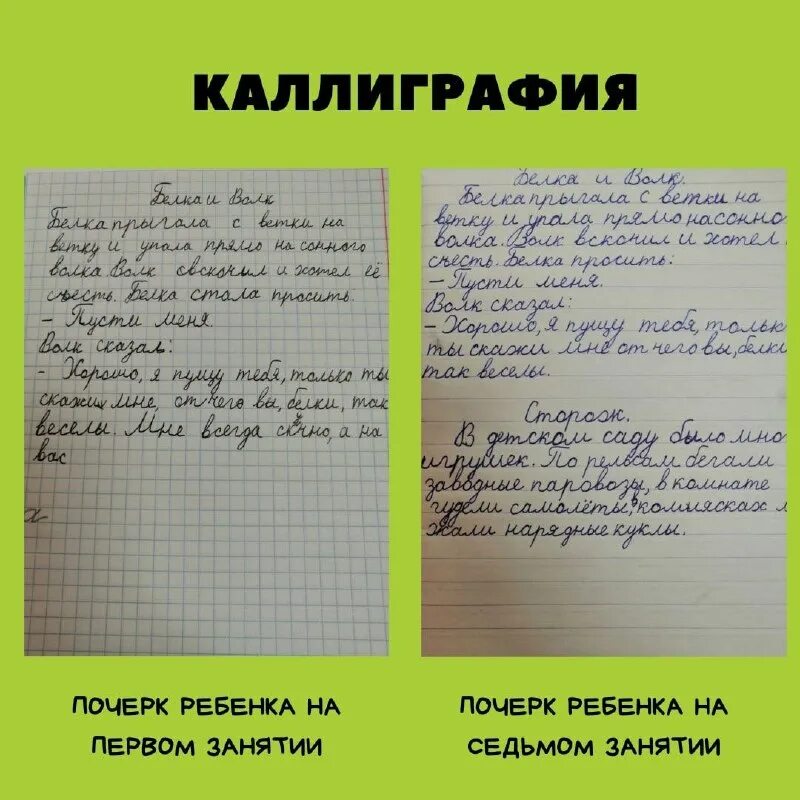 КАЛЛИГРАФИЯ
Белка и Волк
Белка прыгала с ветки на
ветку и упала прямо на сонного
волка Волк овскочил и хотел её
съесть. Белка стала просить.
- Пусти меня.
Волк сказал:
- Хорошо, я пущу тебя, только ты
скажи мне, от чего вы, белки, так
веселы. Мне всегда ску́чно, а на
вас
Белка и Волк.
Белка прыгала с ветки на
ветку и упала прямо на сонно
волка. Волк вскочил и хотел
съесть. Белка просить:
- Пусти меня.
Волк сказал:
- Хорошо, я пущу тебя, только
ты скажи мне от чего вы, белки
так веселы.
Сторож.
В детском саду было мно
игрушек. По рельсам бегали
заводные паровозы, в комнате
гудели самолёты, в л
жали нарядные куклы.
ПОЧЕРК РЕБЕНКА НА
ПЕРВОМ ЗАНЯТИИ
ПОЧЕРК РЕБЕНКА НА
СЕДЬМОМ ЗАНЯТИИ